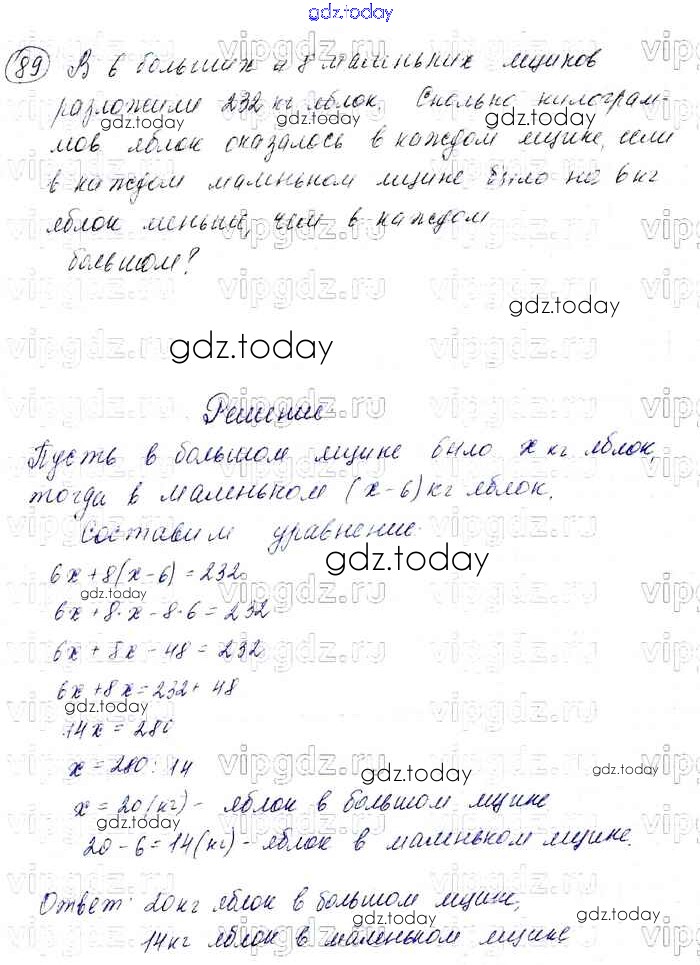 gdz.today
89 В 6 больших и 8 маленьких ящиков
разложили 232 кг яблок. Сколько килограм-
gdz.today gdz.today
мов яблок оказалось в каждом ящике, если
в каждом маленьком ящике было на 6 кг
яблок меньше, чем в каждом
gdz.today
большом?
gdz.today
gdz.today
Решение
Пусть в большом ящике было x кг яблок,
тогда в маленьком (x-6) кг яблок.
Составим уравнение:
gdz.today
6x+8(x-6)=232
6x+8·x-8·6=232
6x+8x-48=232
6x+8x=232+48
gdz.today
14x=280
x=280:14
gdz.today gdz.today
x=20(кг)- яблок в большом ящике
gdz.today
20-6=14(кг)-яблок в маленьком ящике.
Ответ: 20кг яблок в большом ящике,
gdz.today gdz.today
14кг яблок в маленьком ящике
vipgdz.ru